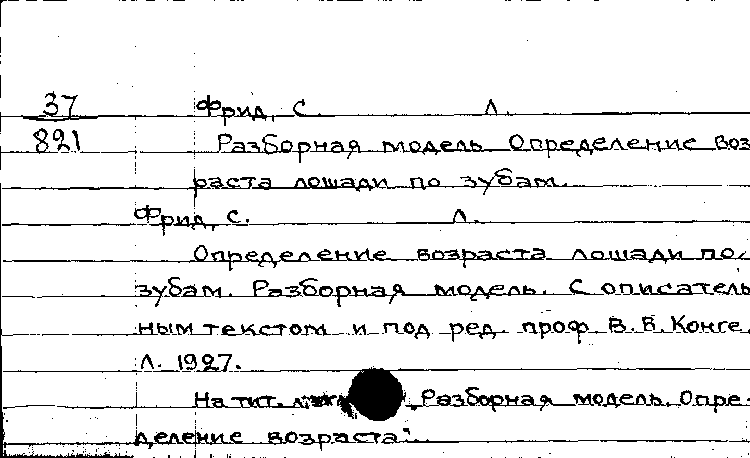 37 Фрид, С. Л.
821 Разборная модель Определение воз
раста лошади по зубам.
Фрид, С. Л.
Определение возраста лошади по
зубам. Разборная модель. С описатель
ным текстом и под ред. проф. В. В. Конге.
Л. 1927.
На тит. „Разборная модель. Опре-
деление возраста".